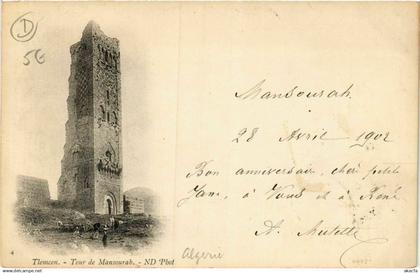 D
56
Mansourah
28 Avril 1902
Bon anniversaire, cher petit
Jane, à Vous et à René
A.
4 Tlemcen. - Tour de Mansourah. - ND Phot
Algerie